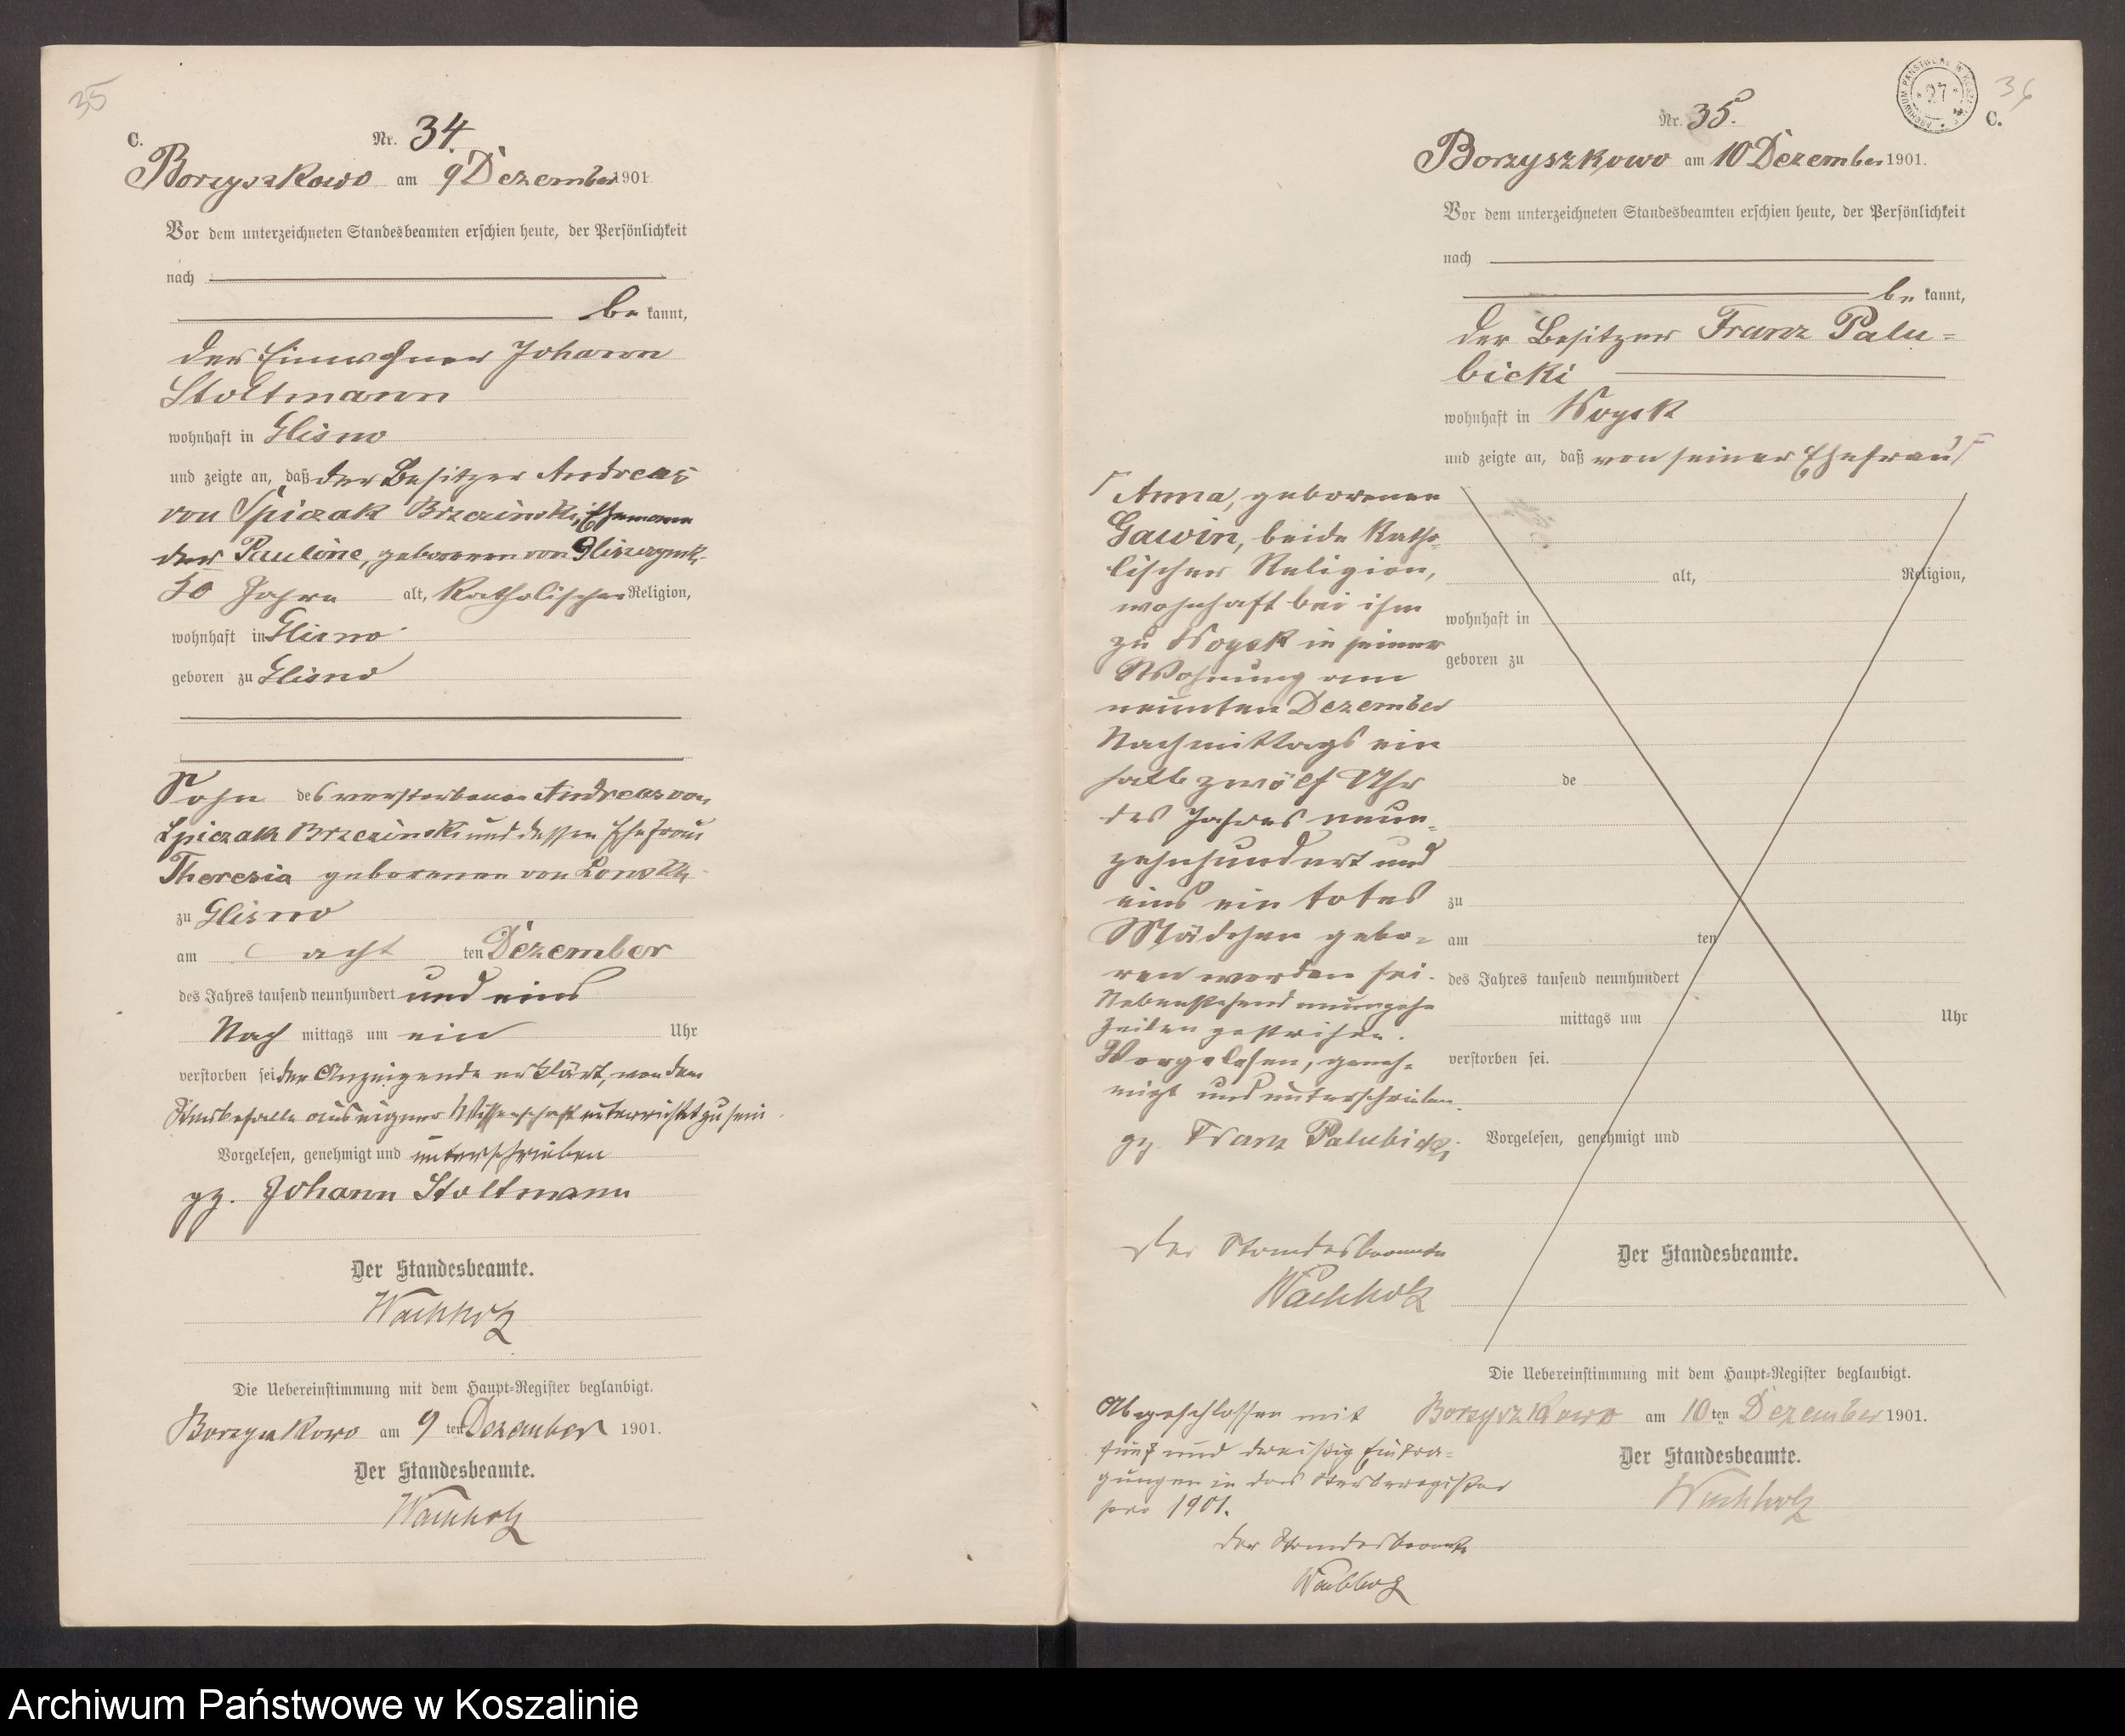 35
C.
Nr. 34.
Borzyszkowo am 9 Dezember 1901
Vor dem unterzeichneten Standesbeamten erschien heute, der Persönlichkeit
nach
be kannt,
der Einwohner Johann
Stoltmann
wohnhaft in Glisno
und zeigte an, daß der Besitzer Andreas
von Spiczak Brzezinski, Ehemann
der Pauline, geborenen von
50 Jahre alt, katholischer Religion,
wohnhaft in Glisno
geboren zu Glisno
Sohn des verstorbenen Andreas von
Spiczak Brzezinski und dessen Ehefrau
Theresia geborenen von
zu Glisno
am acht ten Dezember
des Jahres tausend neunhundert und eins
Nach mittags um ein Uhr
verstorben sei der Anzeigende erklärt, von dem
Sterbefalle aus eigener Wissenschaft unterrichtet zu sein.
Vorgelesen, genehmigt und unterschrieben
gz. Johann Stoltmann
Der Standesbeamte.
Wachholz
Die Uebereinstimmung mit dem Haupt-Register beglaubigt.
Borzyszkowo am 9 ten Dezember 1901.
Der Standesbeamte.
Wachholz
ARCHIWUM PAŃSTWOWE W KOSZALINIE
27
36
C.
Nr. 35.
Borzyszkowo am 10 Dezember 1901.
Vor dem unterzeichneten Standesbeamten erschien heute, der Persönlichkeit
nach
be kannt,
der Besitzer Franz Palu=
bicki
wohnhaft in Wogek
und zeigte an, daß von seiner Ehefrau
Anna, geborenen
Gawin, beide katho=
lischer Religion,
wohnhaft bei ihm
zu Wogek in seiner
Wohnung am
neunten Dezember
Nachmittags ein
halb zwölf Uhr
des Jahres neun=
zehnhundert und
eins ein totes
Mädchen gebo=
ren worden sei.
Nebenstehend neunzehn
Zeilen gestrichen.
Vorgelesen, geneh=
migt und unterschrieben.
gz. Franz Palubicki
Der Standesbeamte
Wachholz
alt, Religion,
wohnhaft in
geboren zu
de
zu
am ten
des Jahres tausend neunhundert
mittags um Uhr
verstorben sei.
Vorgelesen, genehmigt und
Der Standesbeamte.
Die Uebereinstimmung mit dem Haupt-Register beglaubigt.
Borzyszkowo am 10 ten Dezember 1901.
Der Standesbeamte.
Wachholz
Abgeschlossen mit
fünf und dreißig Eintra=
gungen in das Sterberegister
pro 1901.
Der Standesbeamte
Wachholz
Archiwum Państwowe w Koszalinie